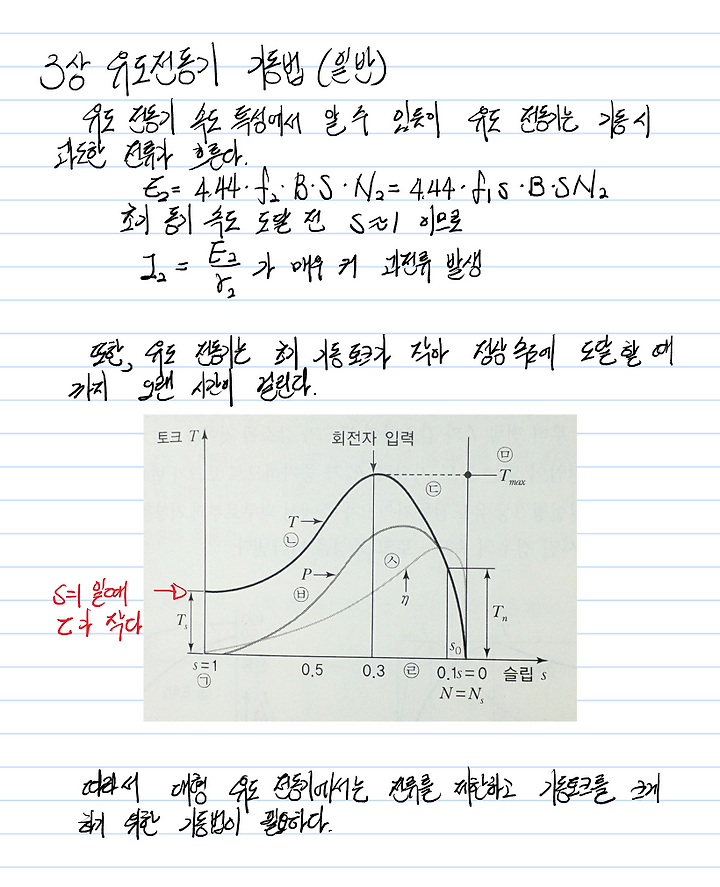 3상 유도전동기 기동법 (일반)
유도 전동기 속도 특성에서 알 수 있듯이 유도 전동기는 기동 시
과도한 전류가 흐른다.
E₂ = 4.44·f₂·B·S·N₂ = 4.44·f₁s·B·SN₂
초기 동기 속도 도달 전 S≈1 이므로
I₂ = E₂/r₂ 가 매우 커 과전류 발생
또한, 유도 전동기는 초기 기동토크가 작아 정상속도에 도달할 때
까지 오랜 시간이 걸린다.
토크 T 회전자 입력
㉤
T_max
㉢
T
㉡
P
㉥
㉦
η
S=1 일때
τ가 작다
T_s
T_n
s₀
s=1 0.5 0.3 ㉣ 0.1 s=0 슬립 s
㉠ N=N_s
따라서 대형 유도 전동기에서는 전류를 제한하고 기동토크를 크게
하기 위한 기동법이 필요하다.